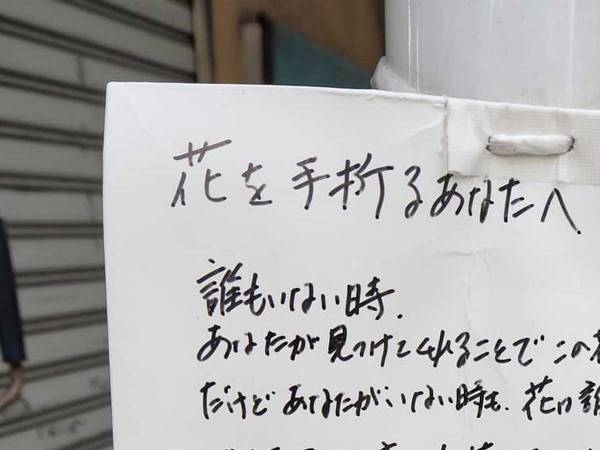 花を手折るあなたへ
誰もいない時、
あなたが見つけてくれることでこの
だけどあなたがいない時も、花は誰